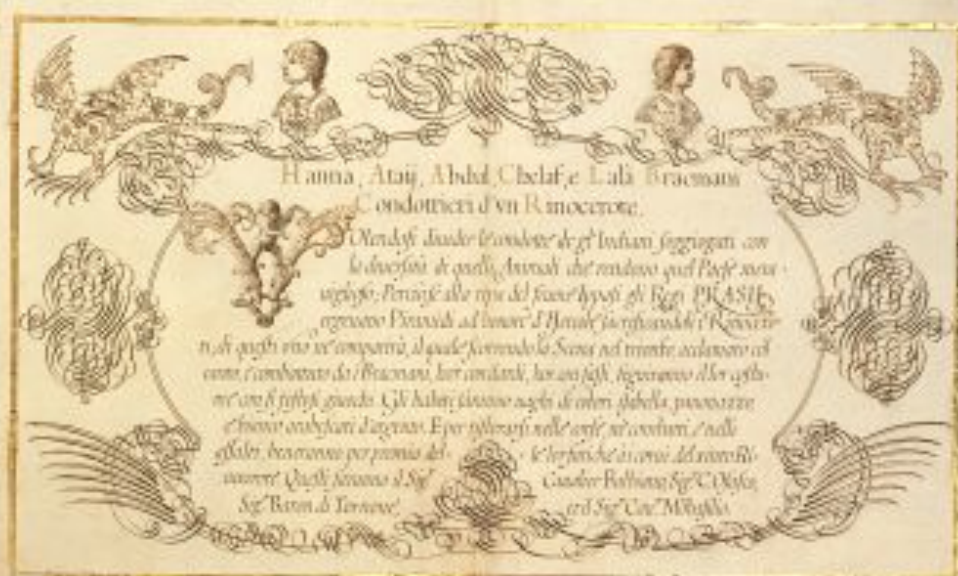 Hanna, Ataij, Abdul, Chelaf, e Lalà Bracmani
Condottrieri d'vn Rinocerote.
VOlendosi diuider le condotte de gl' Indiani soggiogati con
la diuersità di quelli Animali che rendono quel Paese mera-
uiglioso; Perciò se alla ripa del fiume Ippasi gli Regi PRASII
ergeuano Piramidi ad honore d'Hercole sacrificandoli i Rinocero-
ti, di questi vno ne comparirà, il quale scorrendo la Scena nel trionfo, acclamato col
canto, e combattuto da i Bracmani, hor con dardi, hor con
me con sì festosi giuochi. Gli habiti saranno uaghi di colori
e bianco arabescati d'argento. E per nelle corse, ne conflitti, e nelli
assalti, beueranno per premio del- le lor fatiche à i corni del
nocerote. Questi saranno il Sig.r Caualier Balbiano, Sig.r C.
Sig.r Baron di Ternene, et il Sig.r Cau.r